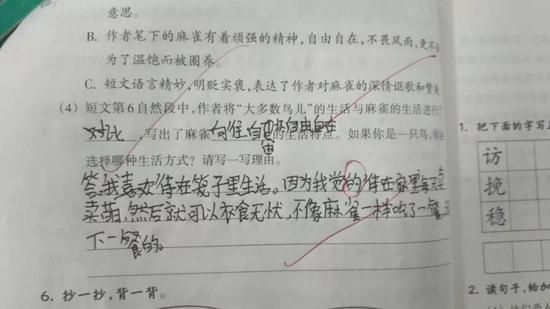 意思。
B. 作者笔下的麻雀有着顽强的精神，自由自在，不畏风雨，更不会
为了温饱而被圈养。
C. 短文语言精妙，明贬实褒，表达了作者对麻雀的深情讴歌和赞美
(4) 短文第6自然段中，作者将“大多数鸟儿”的生活与麻雀的生活进行了
对比，写出了麻雀向往自由自由自在的生活特点。如果你是一只鸟，你会
选择哪种生活方式？请写一写理由。
答：我喜欢待在笼子里生活。因为我觉的待在家里每天卖
卖萌，然后就可以衣食无忧，不像麻雀一样吃了一餐没
下一餐的。
6. 抄一抄，背一背。
1. 把下面的字写
访
挽
稳
2. 读句子，给加